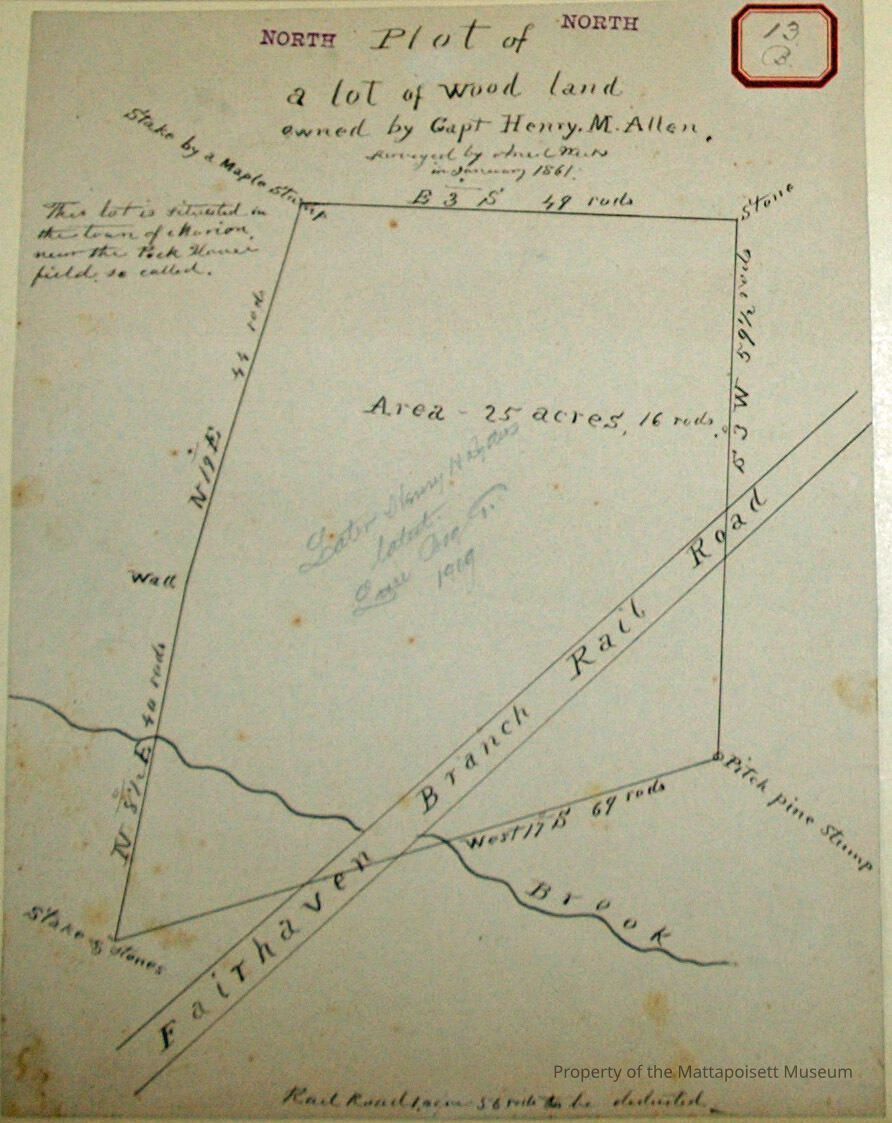 NORTH Plot of NORTH
13
B.
a lot of wood land
owned by Capt Henry. M. Allen.
Surveyed by
in January 1861.
Stake by a Maple Stump
E 3° S 49 rods
Stone
This lot is situated in
the town of Marion,
near the
field, so called.
44 rods
N 19° E
S 3° W 59½ rods
Area - 25 acres, 16 rods.
Later Henry
latest
1919
Wall
40 rods
N 8½° E
Fairhaven Branch Rail Road
West 17° S 69 rods
Pitch pine Stump
Brook
Stake & Stones
Property of the Mattapoisett Museum
Rail Road 1 acre 56 rods to be deducted.